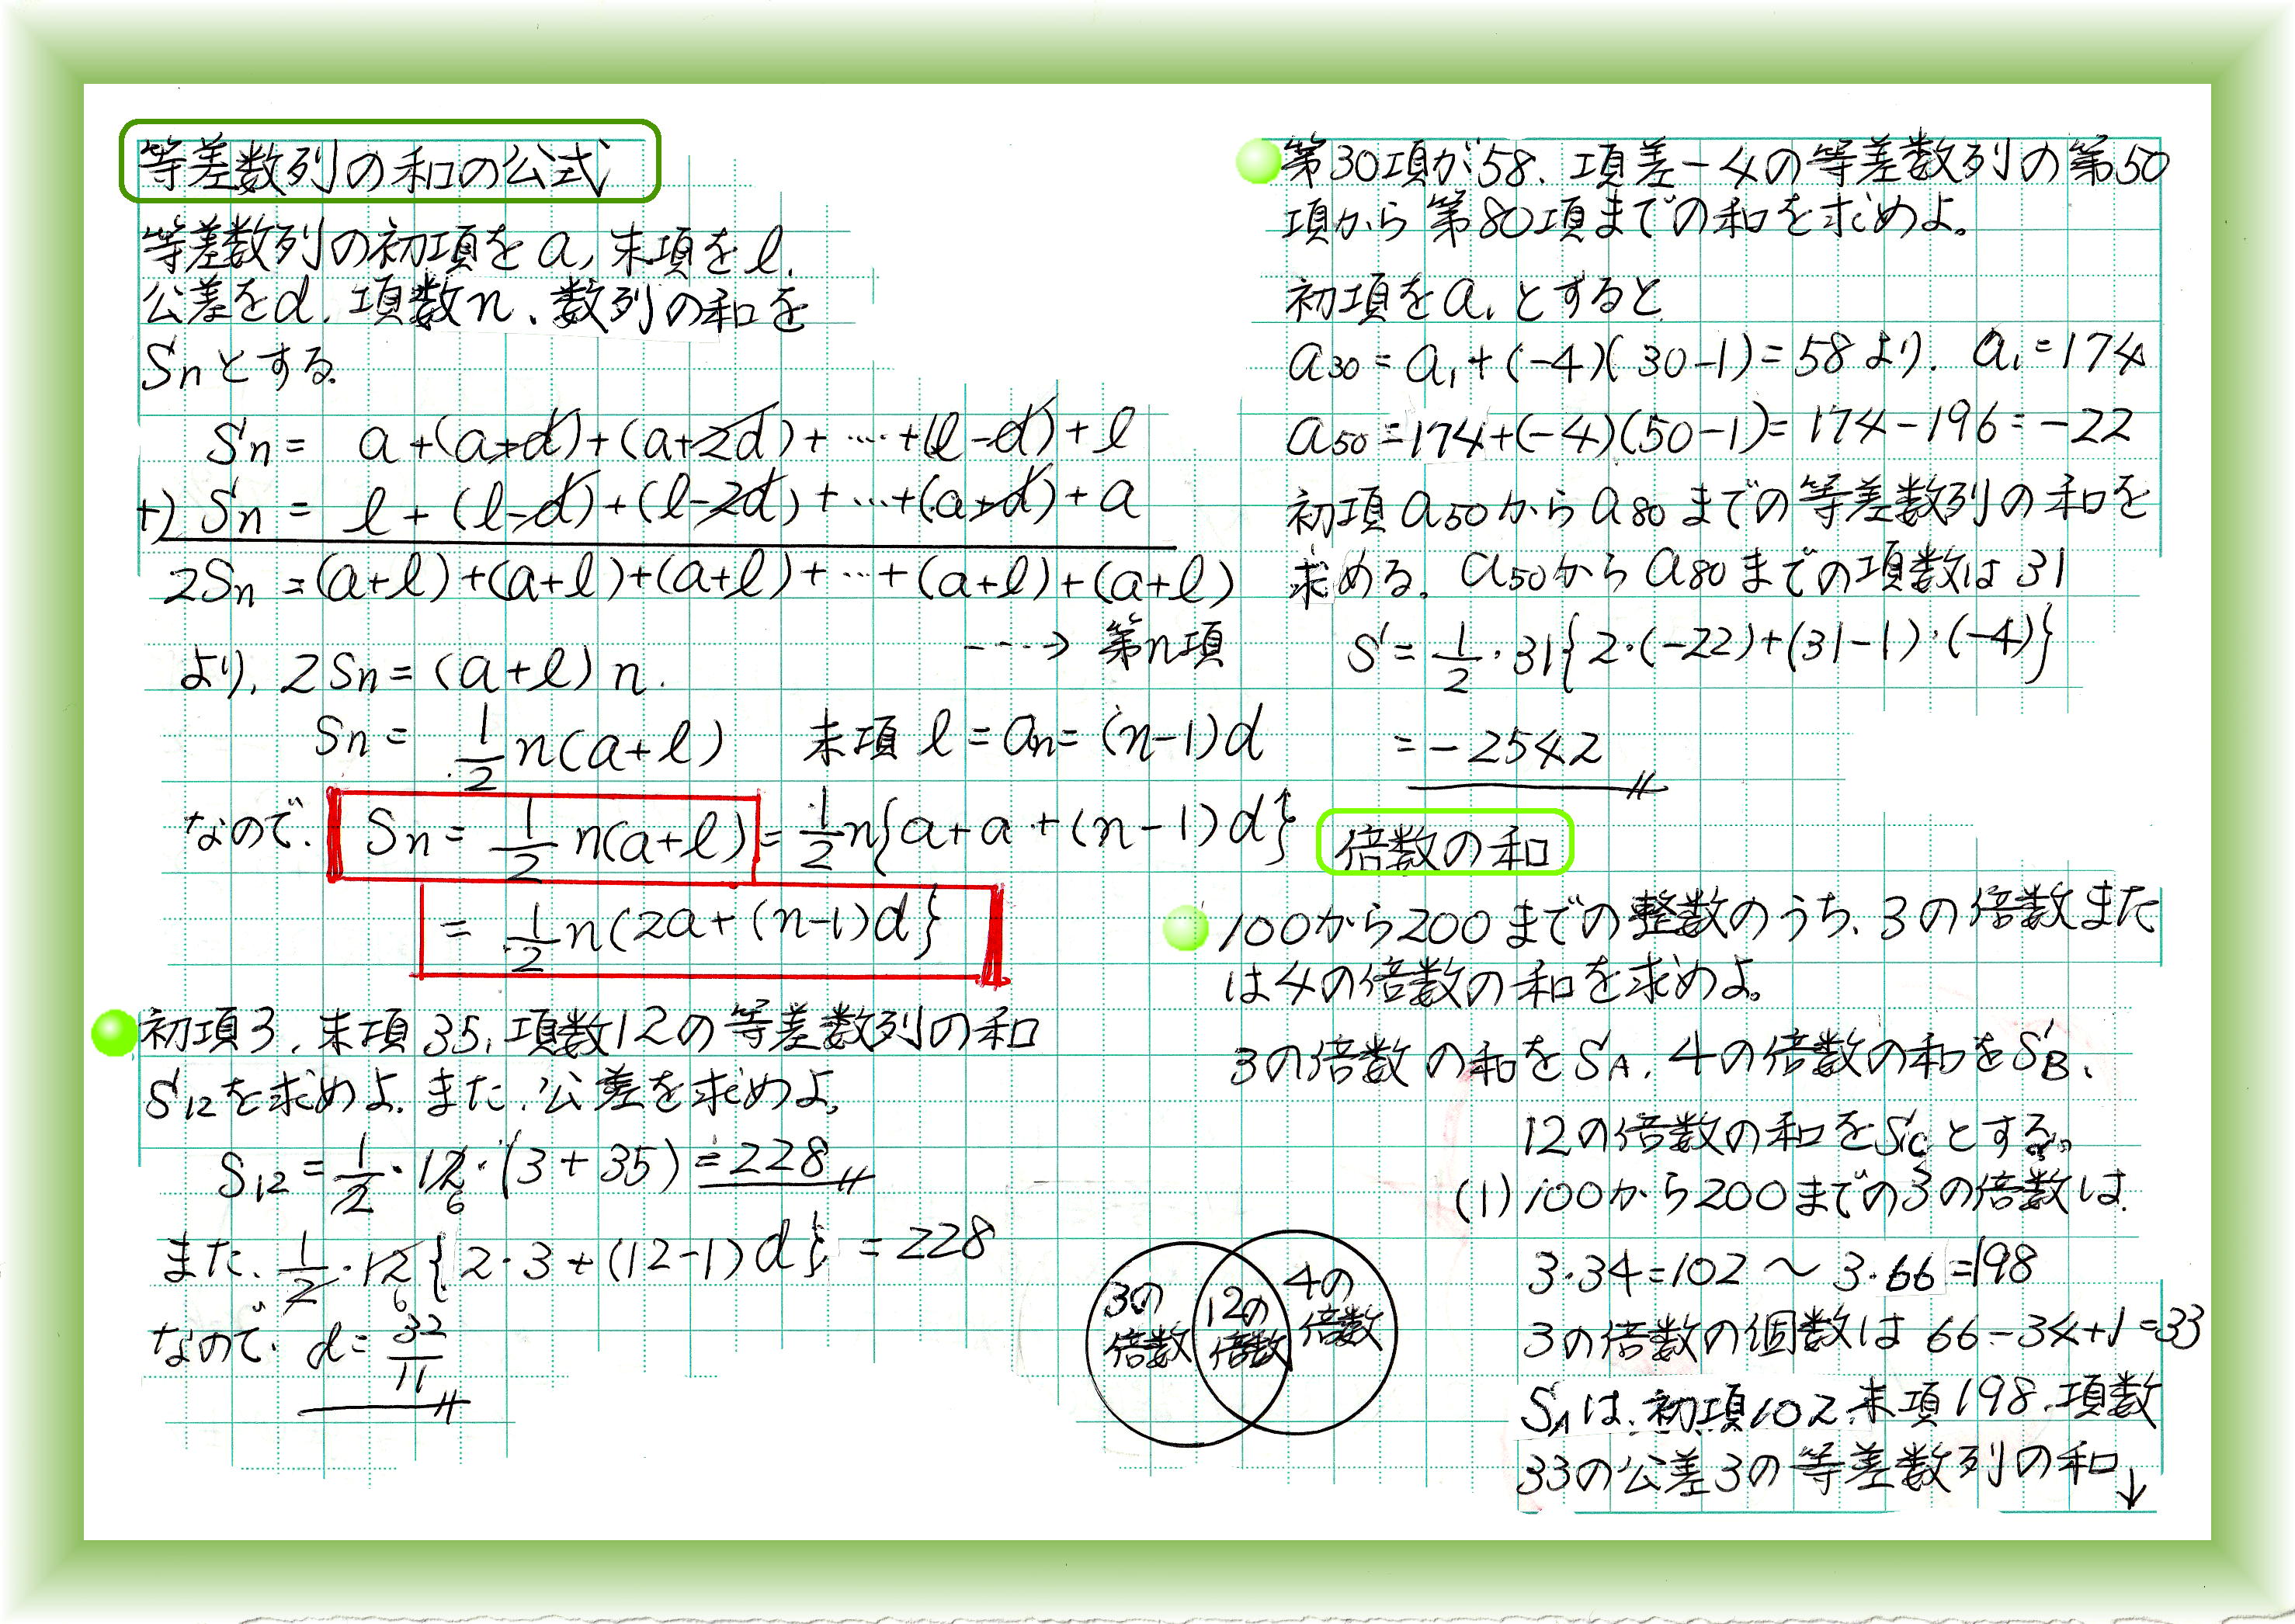 等差数列の和の公式
等差数列の初項をa, 末項をℓ.
公差をd. 項数n、数列の和を
Snとする.
Sn = a+(a+d)+(a+2d)+ ⋯ +(ℓ-d)+ℓ
+) Sn = ℓ+(ℓ-d)+(ℓ-2d)+ ⋯ +(a+d)+a
2Sn =(a+ℓ)+(a+ℓ)+(a+ℓ)+ ⋯ +(a+ℓ)+(a+ℓ)
⋯→ 第n項
より, 2Sn=(a+ℓ)n.
Sn = 1/2 n(a+ℓ) 末項 ℓ=an=(n-1)d
なので. Sn = 1/2 n(a+ℓ) = 1/2 n{a+a+(n-1)d}
= 1/2 n(2a+(n-1)d}
初項3. 末項35, 項数12の等差数列の和
S12を求めよ. また. 公差を求めよ.
S12 = 1/2・12・(3+35) = 228
6
また. 1/2・12{2・3+(12-1)d} = 228
6
なので. d= 32/11
第30項が58. 項差-4の等差数列の第50
項から第80項までの和を求めよ。
初項をa1とすると
a30 = a1+(-4)(30-1)=58より. a1=174
a50=174+(-4)(50-1)=174-196=-22
初項a50からa80までの等差数列の和を
求める. a50からa80までの項数は31
S = 1/2・31{2・(-22)+(31-1)・(-4)}
=-2542
倍数の和
100から200までの整数のうち. 3の倍数また
は4の倍数の和を求めよ。
3の倍数の和をSA. 4の倍数の和をSB、
12の倍数の和をScとする。
(1)100から200までの3の倍数は
3・34=102〜3・66=198
3の倍数の個数は 66-34+1=33
SAは. 初項102. 末項198. 項数
33の公差3の等差数列の和↓
3の
倍数
12の
倍数
4の
倍数